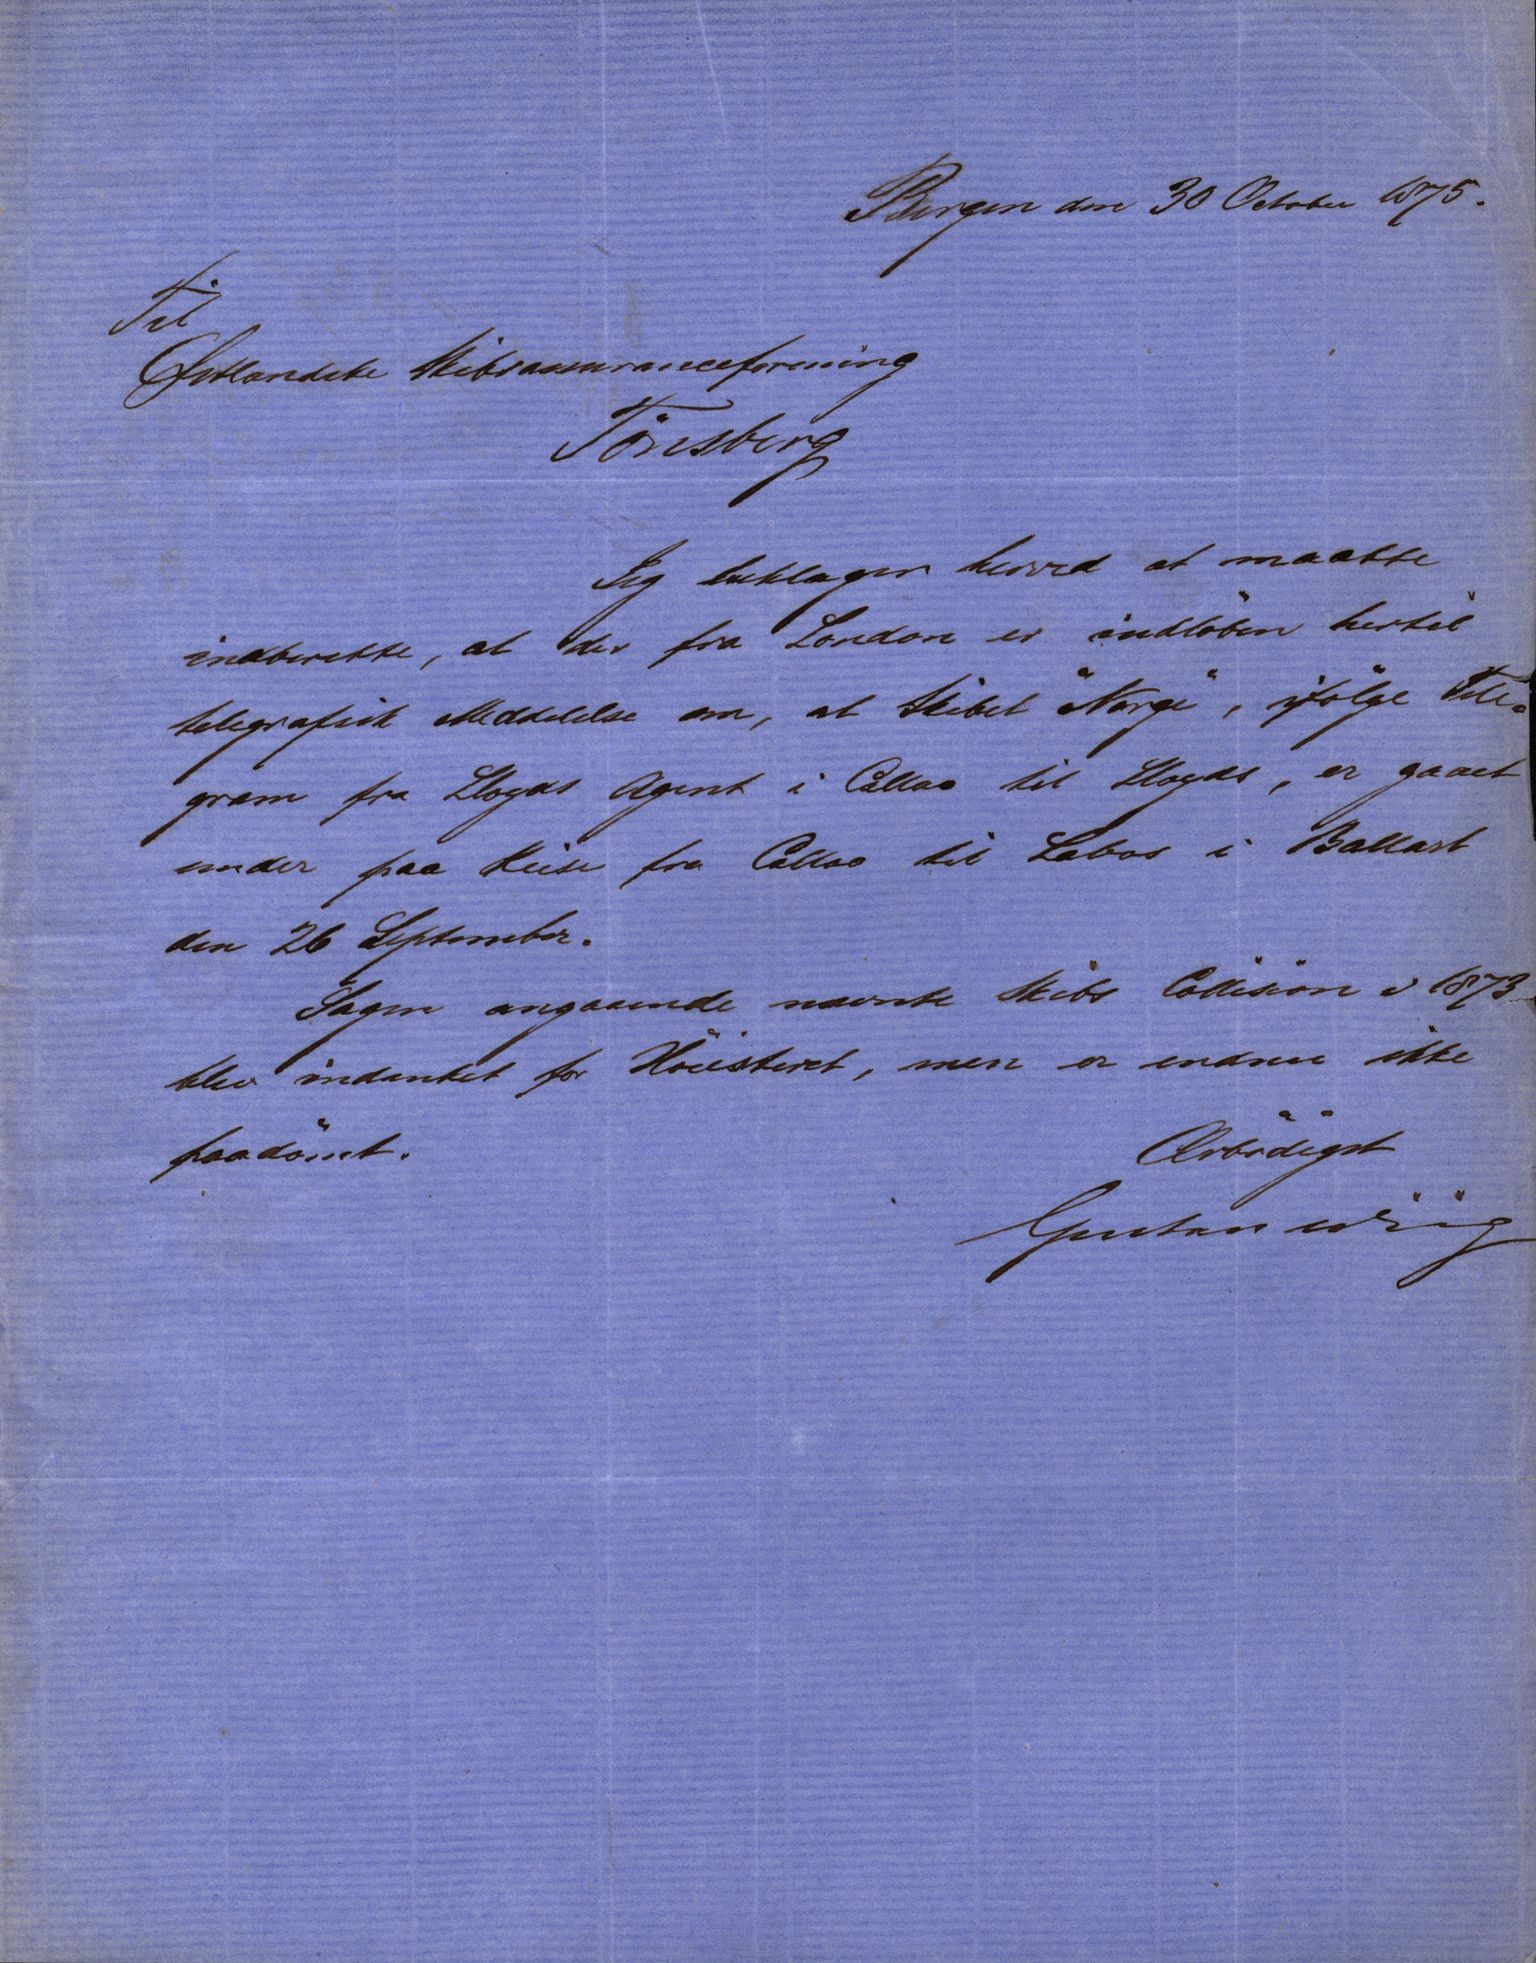 Bergen den 30 October 1875.
Til
Østlandske Skibsassuranceforening
Tönsberg
Jeg beklager herved at maatte
indberette, at der fra London er indlöben hertil
telegrafisk Meddelelse om, at Skibet "Norge", ifölge Tele-
gram fra Lloyds Agent i Callao til Lloyds, er gaaet
under paa Reise fra Callao til Lobos i Ballast
den 26 September.
Sagen angaaende nævnte Skibs Collision i 1873
blev indanket for Höiesteret, men er endnu ikke
paadömt.
Ærbödigst
Gustav